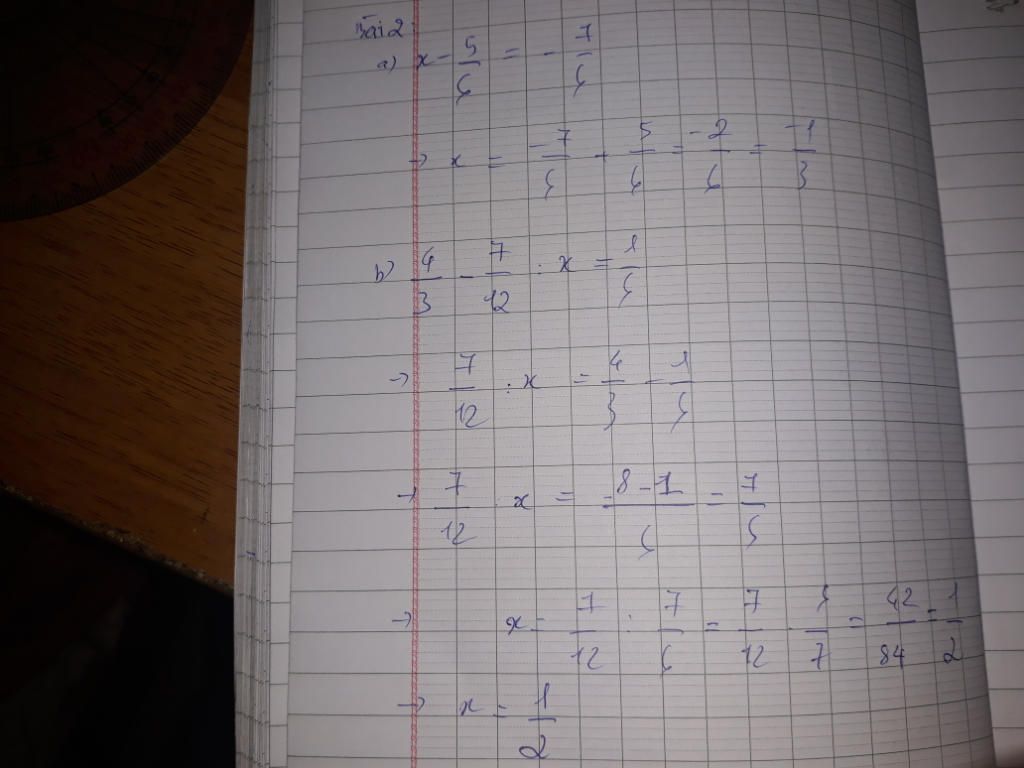 Bài 2
a) x - 5/6 = - 7/6
→ x = -7/6 + 5/6 = -2/6 = -1/3
b) 4/3 - 7/12 : x = 1/6
→ 7/12 : x = 4/3 - 1/6
→ 7/12 : x = 8-1/6 = 7/6
→ x = 7/12 : 7/6 = 7/12 . 6/7 = 42/84 = 1/2
→ x = 1/2